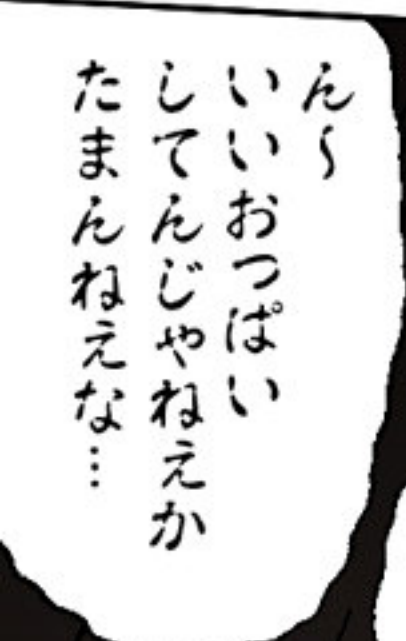 ん～
いいおっぱい
してんじゃねえか
たまんねえな…